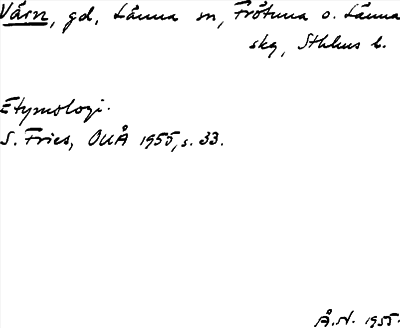 Värn, gd, Länna sn, Frötuna o. Länna
skg, Sthlms l.
Etymologi.
S. Fries, OUÅ 1955, s. 33.
Å.N. 1955.